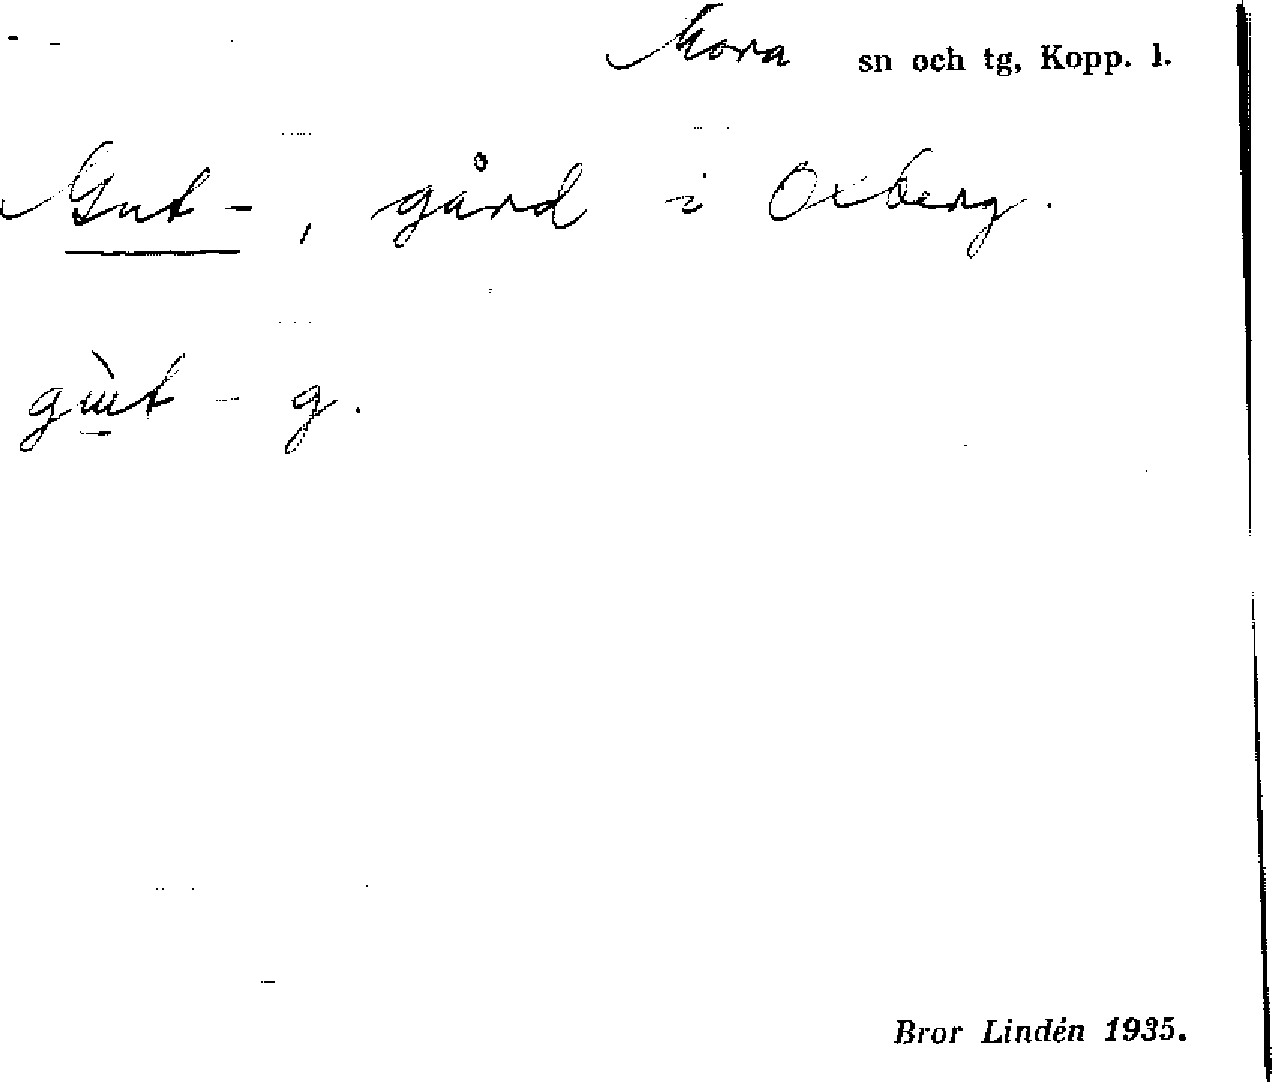 Mora sn och tg, Kopp. l.
Gut-, gård i Oxberg.
gɯ̀t - g.
Bror Lindén 1935.